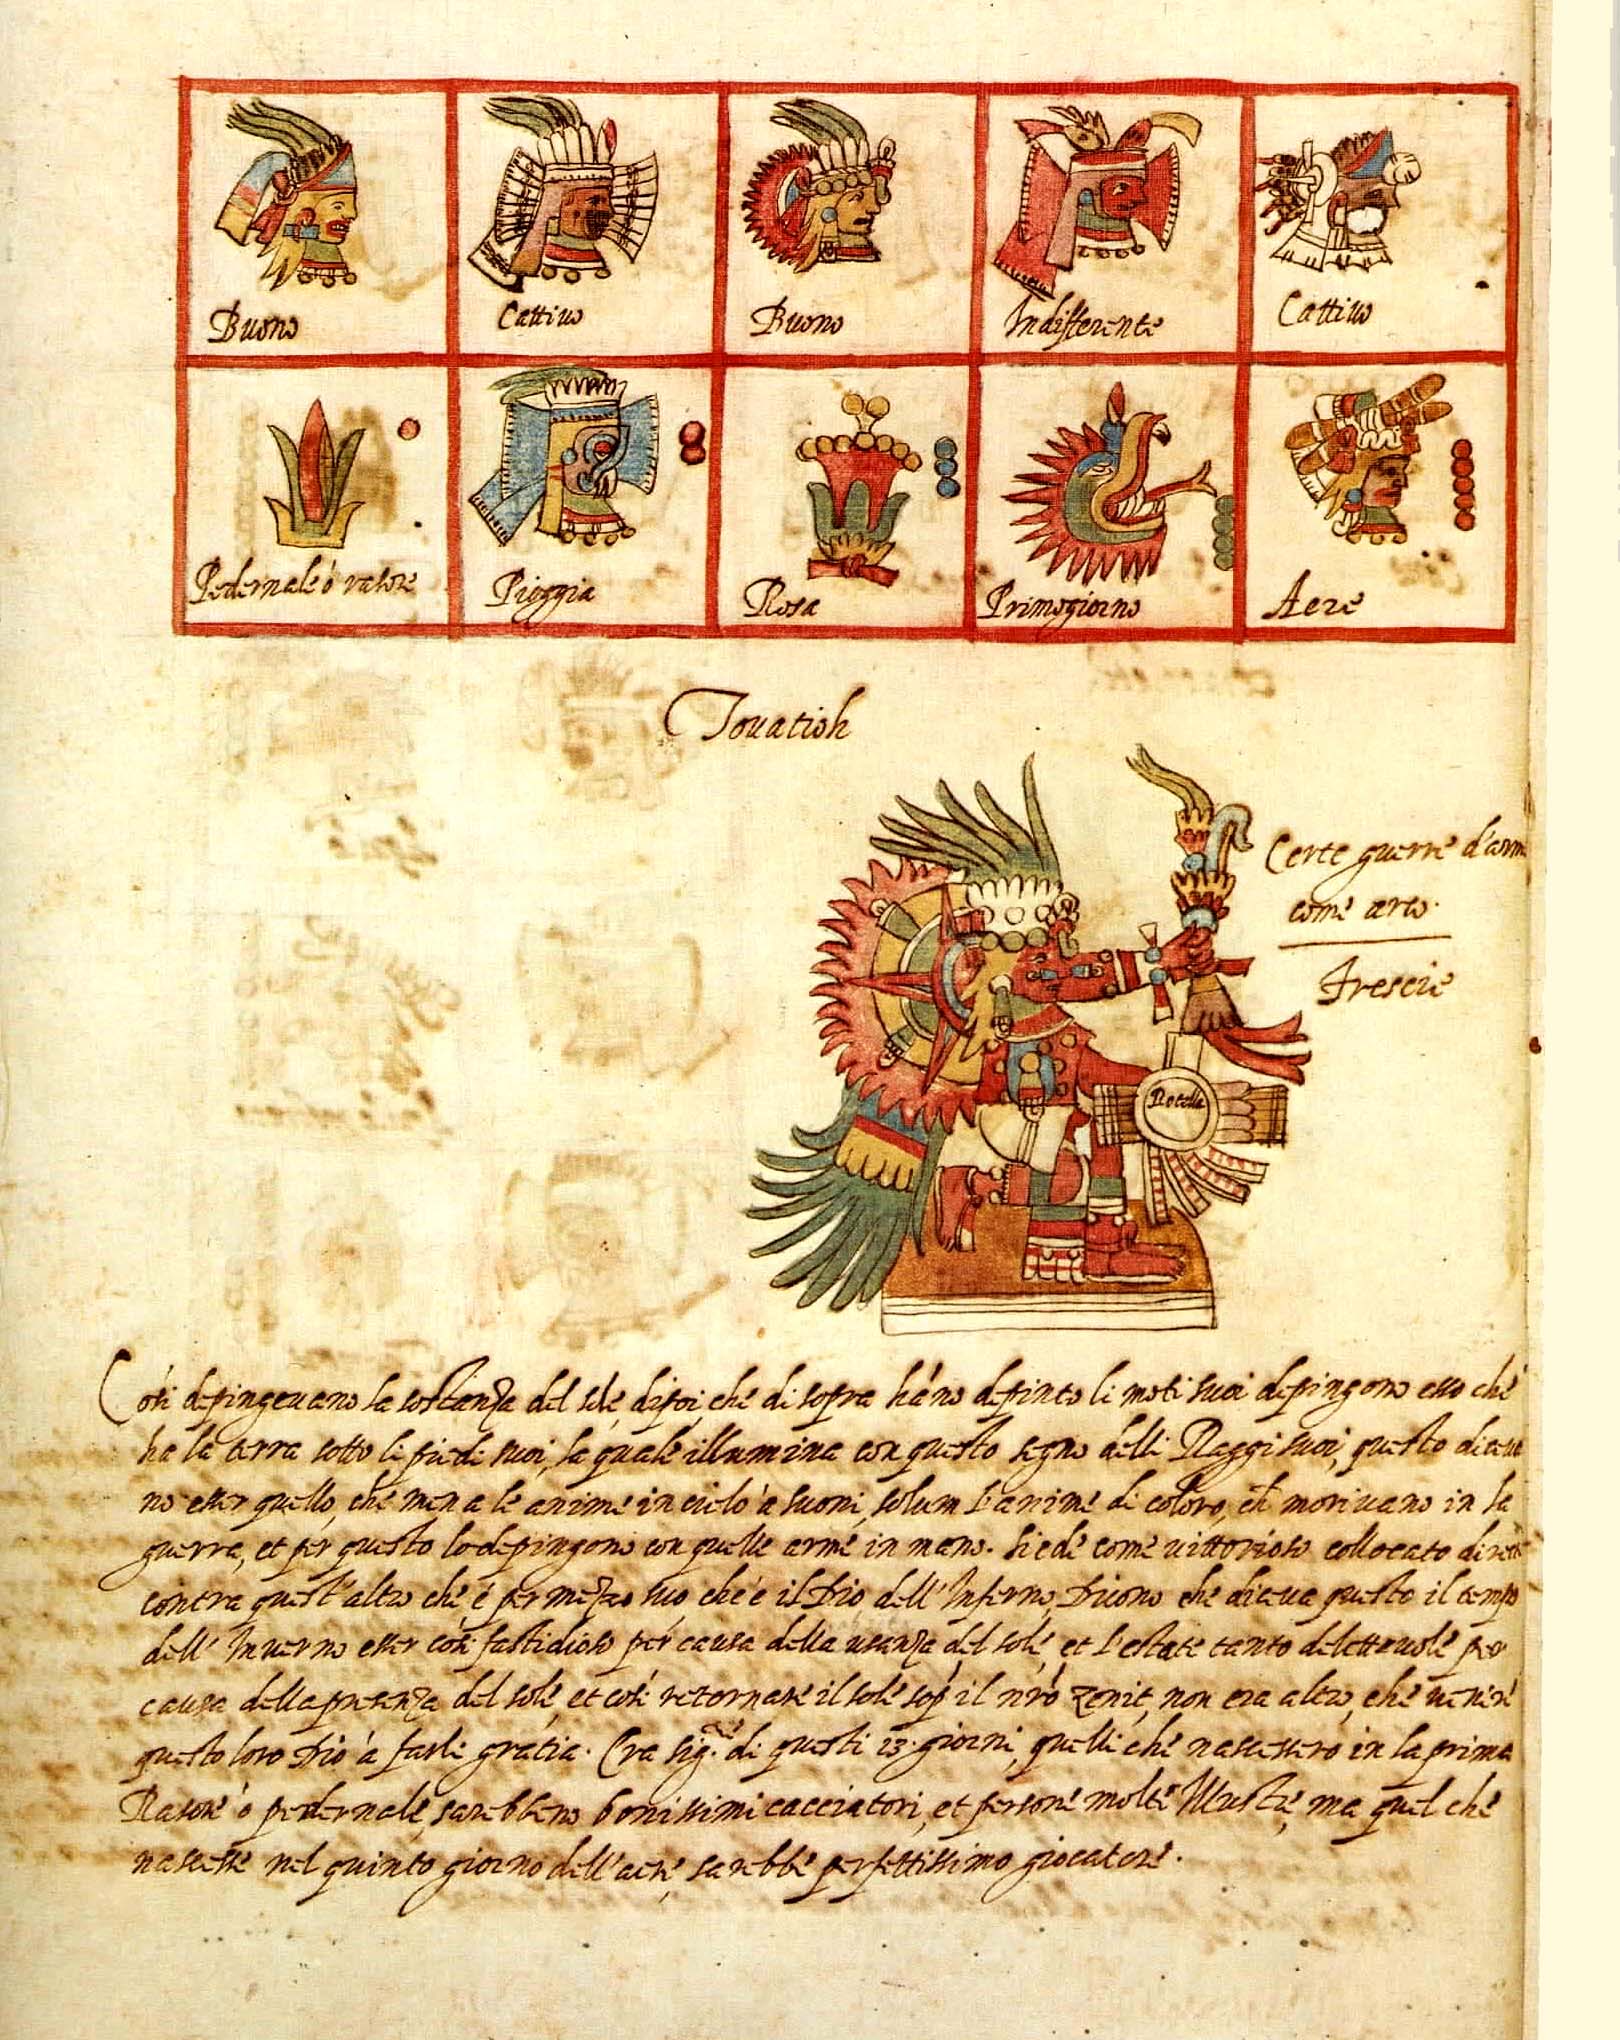 Buono
Cattiuo
Buono
Indifferente
Cattiuo
Pedernale ó rasore
Pioggia
Rosa
Primogiorno
Aere
Tonatioh
Certe guerre d'arm
come arco.
Frescie
Rotella
Cosi depingeuano la sostanza del sole, dipoi, che di sopra hano depinto li moti suoi depingono esso che
ha la terra sotto li piedi suoi, la quale illumina con questo segno delli Raggi suoi, questo diceua
no esser quello, che mena le anime in cielo à suoni, solum l'anime di coloro, ch moriuano in la
guerra, et per questo lo depingono con quelle arme in mano. Siede come uittorioso collocato
contra quest'altro che é per mezzo suo che é il Dio dell'Inferno, Diceua questo il tempo
dell'Inuerno esser cosi fastidioso per causa della del sole, et l'estate tanto deletteuole per
causa della presenza del sole, et cosi retornare il sole sop il nro zenit, non era altro, che uenire
questo loro Dio à farli gratia. Era sig. di questi 13. giorni, quelli che nascessero in la prima
Rasore ó pedernale, sarebbeno bonissimi cacciatori, et persone molte Illustre, ma quel che
nascesse nel quinto giorno dell'aere, sarebbe perfettissimo giocatore.